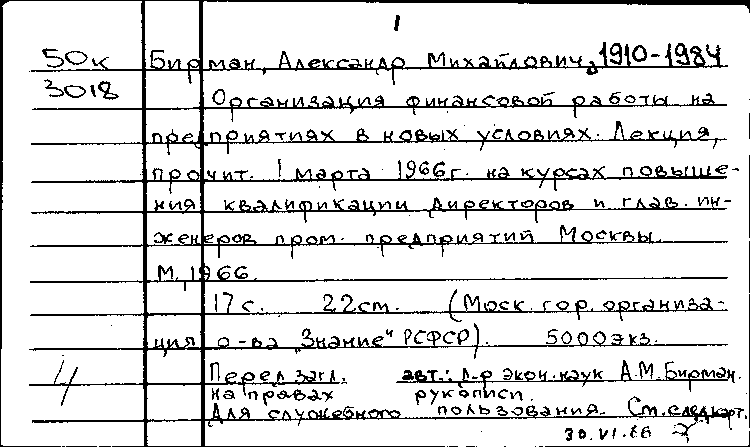 1
50к Бирман, Александр Михайлович, 1910-1984
3018
Организация финансовой работы на
предприятиях в новых условиях. Лекция,
прочит. 1 марта 1966г. на курсах повыше-
ния квалификации директоров и глав. ин-
женеров пром. предприятий Москвы.
М., 1966.
17 с. 22 см. (Моск. гор. организа-
ция о-ва „Знание" РСФСР). 5000 экз.
Перед загл. авт.: д-р экон. наук А.М. Бирман.
на правах рукописи.
Для служебного пользования. См. след. карт.
30.VI.66